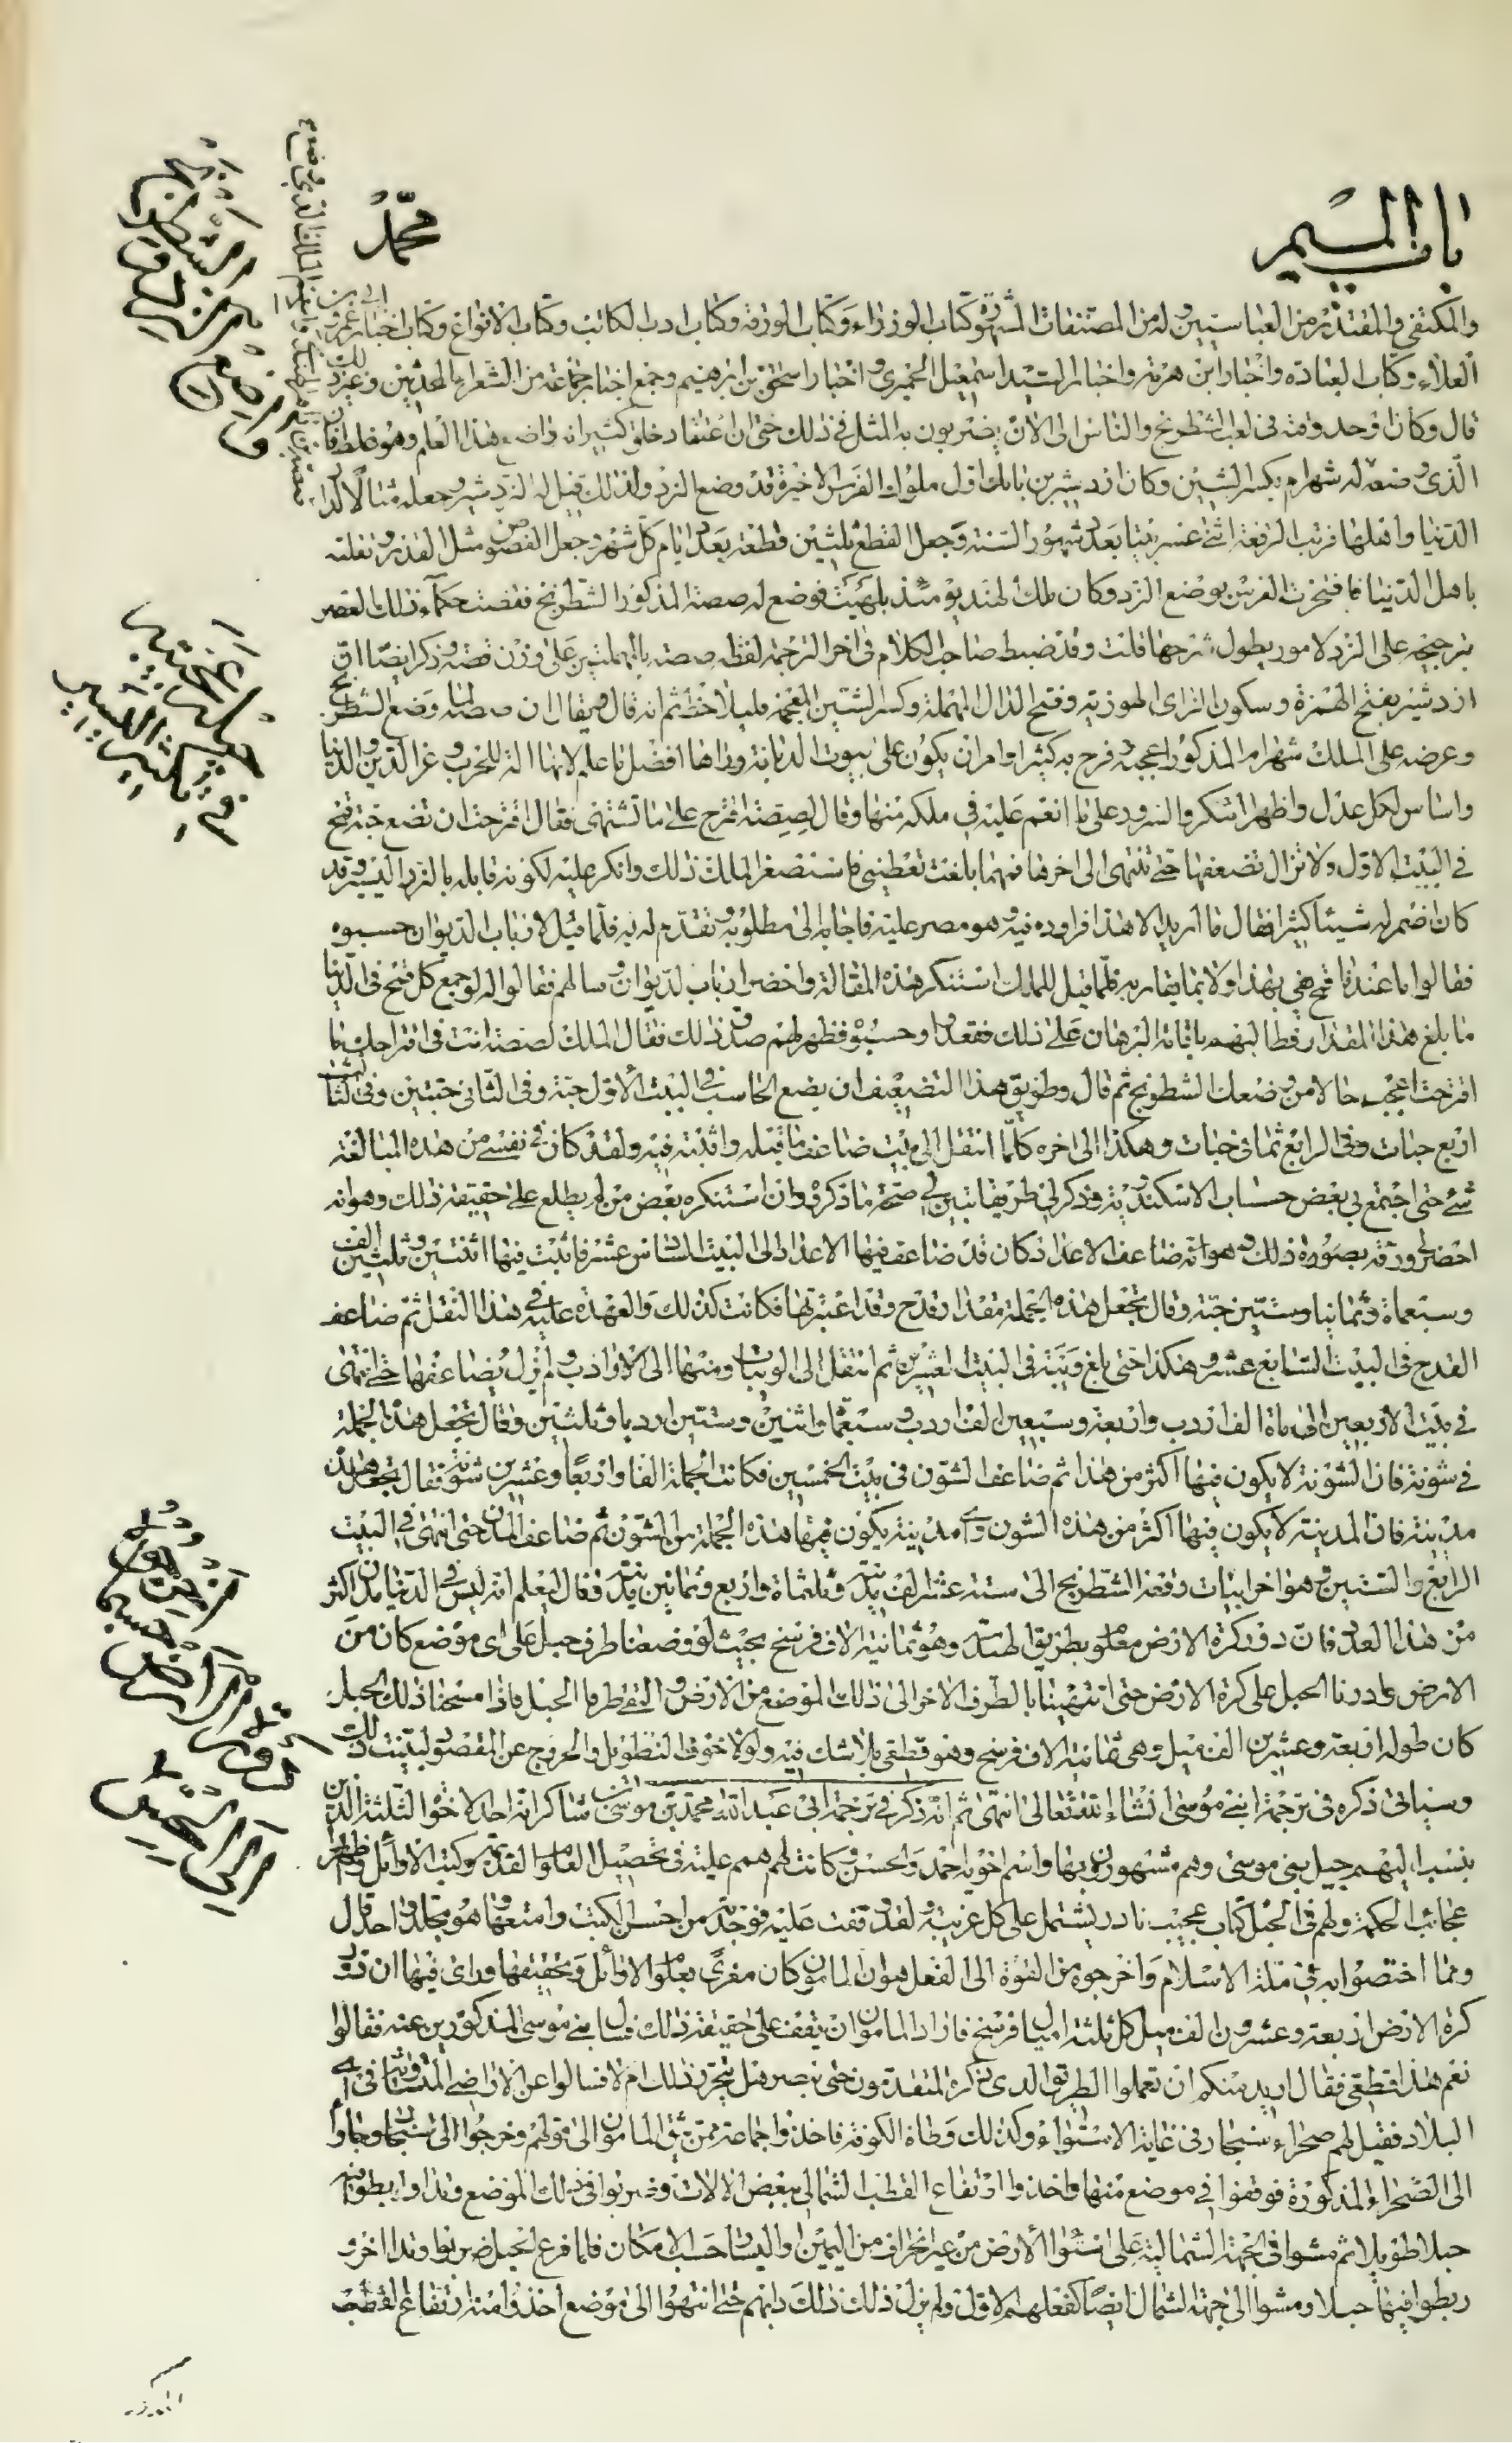 باب الميم
محمد
والمكتفي والمقتدر من العباسيين وله من المصنفات المشهورة كتاب الوزراء وكتاب الورقة وكتاب ادب الكاتب وكتاب الانواع وكتاب اخبار ابي عمرو بن
العلاء وكتاب العبادة واخبار ابن هرمة واخبار السيد اسمعيل الحميري واخبار اسحق بن ابرهيم وجمع اخبار جماعة من الشعراء المحدثين وغير ذلك
قال وكان اوحد وقته في لعب الشطرنج والناس الى الان يضربون به المثل في ذلك حتى ان اعتقاد خلق كثير انه واضع هذا العلم وهو غلط فان
الذي وضعه له شهرام بكسر الشين وكان ازدشير بن بابك اول ملوك الفرس الاخيرة قد وضع النرد ولذلك قيل له النردشير وجعله مثالا لدار
الدنيا واهلها فرتب الرقعة اثنى عشر بيتا بعدد شهور السنة وجعل القطع ثلثين قطعة بعدد ايام كل شهر وجعل الفصوص مثل القدر وتقلبه
باهل الدنيا فافتخرت الفرس بوضع النرد وكان ملك الهند يومئذ بلهيث فوضع له صصه المذكور الشطرنج فقضت حكماء ذلك العصر
بترجيحه على النرد لامور يطول شرحها قلت وقد ضبط صاحب الكلام في اخر الترجمة لفظه صصه بالمهملتين على وزن قصه وذكر ايضا ان
ازدشير بفتح الهمزة وسكون الزاى الهوزية وفتح الدال المهملة وكسر الشين المعجمة فليلاحظ ثم انه قال ويقال ان صصه لما وضع الشطرنج
وعرضه على الملك شهرام المذكور اعجبه وفرح به كثيرا وامر ان يكون على بيوت الديانة وراها افضل ما علم لانها الة للحرب وعز الدين والدنيا
واساس لكل عدل واظهر الشكر والسرور على ما انعم عليه في ملكه منها وقال لصصه اقترح على ما تشتهى فقال اقترحت ان تضع حبة قمح
في البيت الاول ولا تزال تضعفها حتى تنتهى الى اخرها فمهما بلغت تعطيني فاستصغر الملك ذلك وانكر عليه لكونه قابله بالنزر اليسير وقد
كان اضمر له شيئا كثيرا فقال ما اريد الا هذا فراوده فيه وهو مصر عليه فاجابه الى مطلوبه وتقدم له به فلما قيل لارباب الديوان حسبوه
فقالوا ما عندنا قمح يفي بهذا ولا بما يقاربه فلما قيل للملك استنكر هذه المقالة واحضر ارباب الديوان وسالهم فقالوا له لو جمع كل قمح في الدنيا
ما بلغ هذا المقدار فطالبهم باقامة البرهان على ذلك فقعدوا وحسبوه فظهر لهم صدق ذلك فقال الملك لصصه انت في اقتراحك ما
اقترحت اعجب حالا من وضعك الشطرنج ثم قال وطريق هذا التضعيف ان يضع الحاسب في البيت الأول حبة وفى الثاني حبتين وفى الثالث
اربع حبات وفى الرابع ثمانى حبات وهكذا الى اخره كلما انتقل الى بيت ضاعف ما قبله واثبته فيه ولقد كان في نفسى من هذه المبالغة
شئ حتى اجتمع بي بعض حساب الاسكندرية وذكر لي طريقا تبين لي صحة ما ذكروه وان استنكره بعض من لم يطلع على حقيقة ذلك وهو انه
احضر لي ورقة بصورة ذلك وهو انه ضاعف الاعداد كان قد ضاعف فيها الاعداد الى البيت السادس عشر فاثبت فيها اثنتين وثلثين الف
وسبعماة وثمانيا وستين حبة وقال نجعل هذه الجملة مقدار قدح وقد اعتبرتها فكانت كذلك والعهدة عليه في هذا النقل ثم ضاعف
القدح في البيت السابع عشر وهكذا حتى بلغ ويبة في البيت العشرين ثم انتقل الى الويبات ومنها الى الارادب ولم يزل يضاعفها حتى انتهى
في بيت الاربعين الى ماة الف اردب واربعة وسبعين الف اردب وسبعماة واثنين وستين اردبا وثلثين وقال نجعل هذه الجملة
في شونة فان الشونة لا يكون فيها اكثر من هذا ثم ضاعف الشون في بيت الخمسين فكانت الجملة الفا واربعا وعشرين شونة فقال نجعل هذه
مدينة فان المدينة لا يكون فيها اكثر من هذه الشون واى مدينة يكون فيها هذه الجملة من الشون ثم ضاعف المدن حتى انتهى في البيت
الرابع والستين وهو اخر ابيات رقعة الشطرنج الى ستة عشر الف مدينة وثلثماة واربع وثمانين مدينة وقال ليعلم انه ليس في الدنيا مدن اكثر
من هذا العدد فان دور كرة الارض معلوم بطريق الهندسه وهو ثمانية الاف فرسخ بحيث لو وضعنا طرف حبل على اى موضع كان من
الارض وادرنا الحبل على كرة الارض حتى انتهينا بالطرف الاخر الى ذلك الموضع من الارض والتقى طرفا الحبل فاذا مسحنا ذلك الحبل
كان طوله اربعة وعشرين الف ميل وهى ثمانية الاف فرسخ وهو قطعي بلا شك فيه ولولا خوف التطويل والخروج عن المقصود لبينت ذلك
وسياتى ذكره في ترجمة ابنى موسى انشاء الله تعالى انتهى ثم انه ذكر في ترجمة ابي عبد الله محمد بن موسى بن شاكر انه احد الاخوة الثلثة الذين
ينسب اليهم حيل بني موسى وهم مشهورون بها واسم اخويه احمد والحسن وكانت لهم همم علية في تحصيل العلوم القديمة وكتب الاوائل
عجائب الحكمة ولهم في الحيل كتاب عجيب نادر يشتمل على كل غريبة ولقد وقفت عليه فوجدته من احسن الكتب وامتعها وهو مجلد واحد قال
ومما اختصوا به في ملة الاسلام واخرجوه من القوة الى الفعل هو ان المامون كان مغرى بعلوم الاوائل وتحقيقها وراى فيها ان دور
كرة الارض اربعة وعشرون الف ميل كل ثلثة اميال فرسخ فاراد المامون ان يقف على حقيقة ذلك فسال بنى موسى المذكورين عنه فقالوا
نعم هذا قطعي فقال اريد منكم ان تعملوا الطريق الذى ذكره المتقدمون حتى نبصر هل يتحرر ذلك ام لا فسالوا عن الاراضي المتساوية في اى
البلاد فقيل لهم صحراء سنجار في غاية الاستواء وكذلك وطاة الكوفة فاخذوا جماعة ممن يثق المامون الى قولهم وخرجوا الى سنجار وجاؤا
الى الصحراء المذكورة فوقفوا في موضع منها واخذوا ارتفاع القطب الشمالي ببعض الالات وضربوا في ذلك الموضع وتدا وربطوا فيه
حبلا طويلا ثم مشوا في الجهة الشمالية على استواء الأرض من غير انحراف من اليمين او اليسار حسب الامكان فلما فرغ الحبل ضربوا وتدا اخر و
ربطوا فيها حبلا ومشوا الى جهة الشمال ايضا كفعلهم الاول ولم يزل ذلك دابهم حتى انتهوا الى موضع اخذوا منه ارتفاع القطب